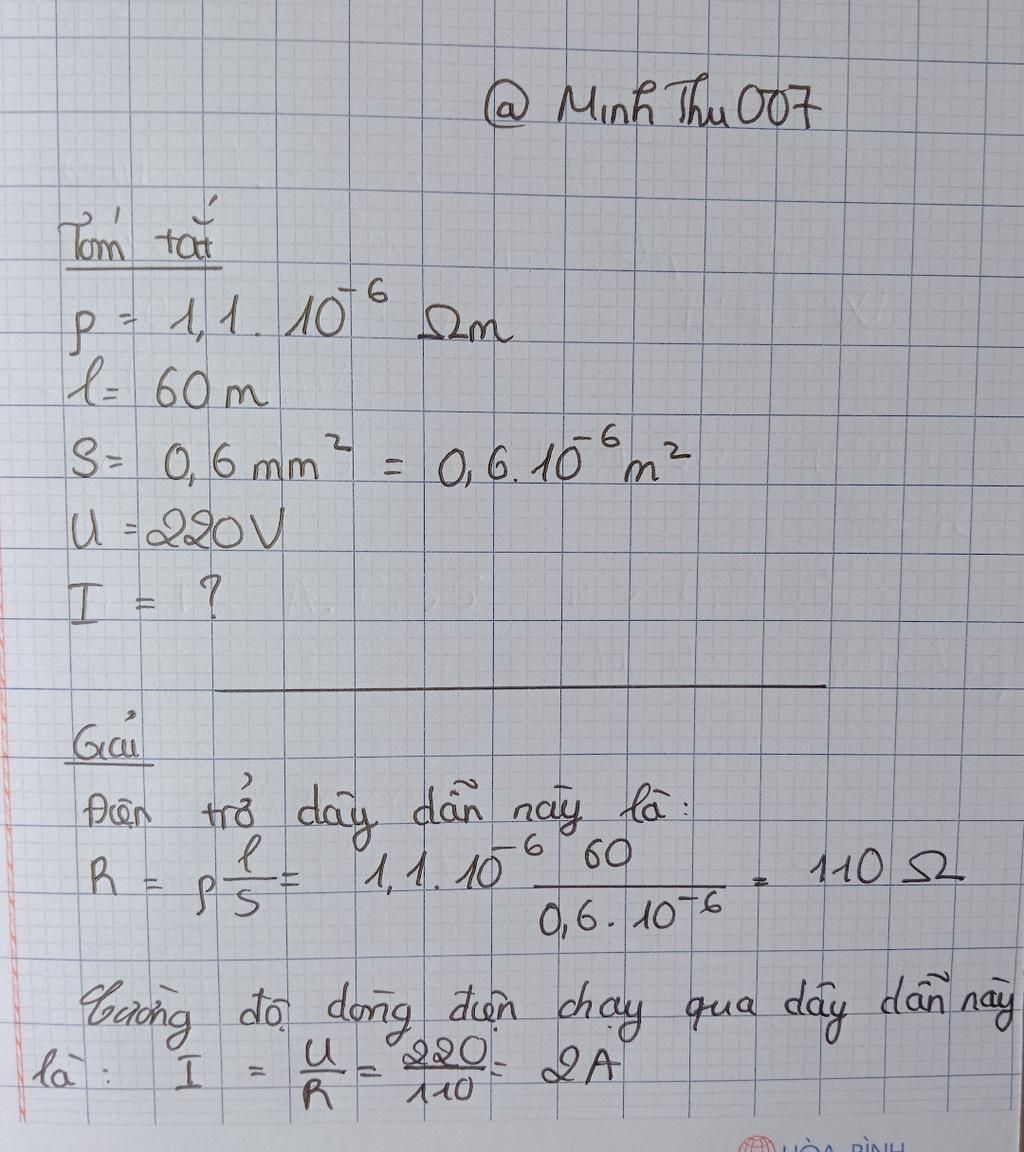 @ Minh Thu 007
Tóm tắt
ρ = 1,1. 10⁻⁶ Ωm
l = 60 m
S = 0,6 mm² = 0,6. 10⁻⁶ m²
U = 220V
I = ?
Giải
Điện trở dây dẫn này là:
R = ρ l/S = 1,1. 10⁻⁶ 60/0,6. 10⁻⁶ = 110 Ω
Cường độ dòng điện chạy qua dây dẫn này
là: I = U/R = 220/110 = 2A
HÒA BÌNH